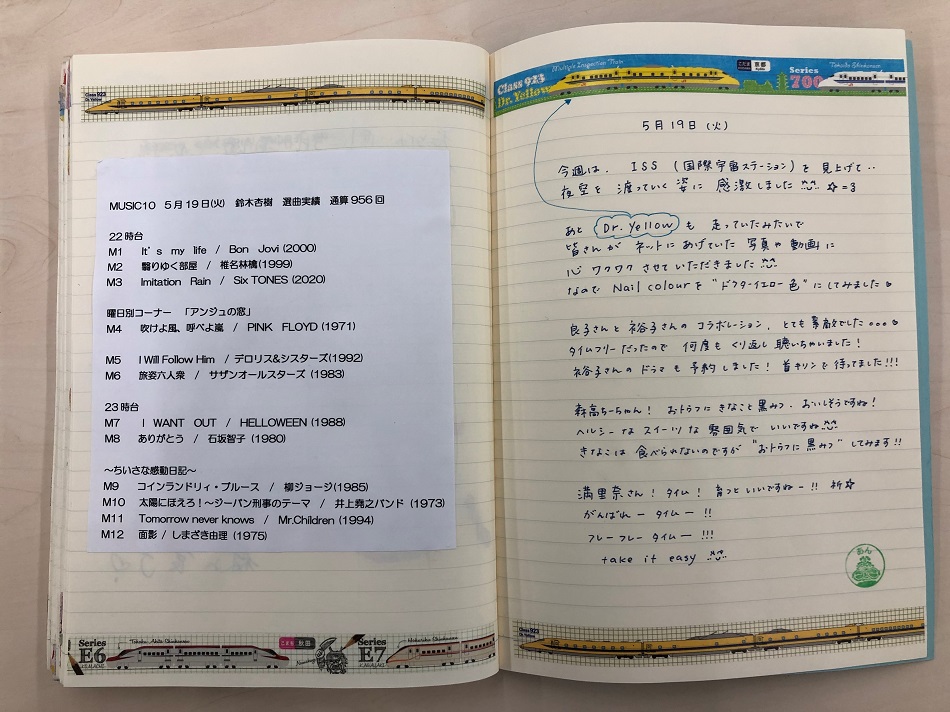 Class 923
Dr. Yellow
MUSIC10 5月19日(火) 鈴木杏樹 選曲実績 通算956回
22時台
M1 It's my life / Bon Jovi (2000)
M2 翳りゆく部屋 / 椎名林檎(1999)
M3 Imitation Rain / Six TONES (2020)
曜日別コーナー 「アンジュの窓」
M4 吹けよ風、呼べよ嵐 / PINK FLOYD (1971)
M5 I Will Follow Him / デロリス&シスターズ(1992)
M6 旅姿六人衆 / サザンオールスターズ (1983)
23時台
M7 I WANT OUT / HELLOWEEN (1988)
M8 ありがとう / 石坂智子 (1980)
～ちいさな感動日記～
M9 コインランドリィ・ブルース / 柳ジョージ(1985)
M10 太陽にほえろ!～ジーパン刑事のテーマ / 井上堯之バンド (1973)
M11 Tomorrow never knows / Mr.Children (1994)
M12 面影 / しまざき由理 (1975)
Series E6
こまち 秋田
Series E7
Class 923 Dr. Yellow
Multiple Inspection Train
京都
Series 700
Tokaido Shinkansen
5月19日(火)
今週は、ISS (国際宇宙ステーション) を 見上げて‥
夜空を 渡っていく姿に 感激しました ☆=3
あと Dr. Yellow も 走っていたみたいで
皆さんが ネットにあげていた 写真や動画に
心 ワクワク させていただきました
なので Nail colour を "ドクターイエロー色" にしてみました
良子さんと 裕子さんの コラボレーション、とても素敵でした。。。
タイムフリーだったので 何度もくり返し 聴いちゃいました!
裕子さんのドラマも 予約しました! 首キリンで待ってました!!!
森高ちーちゃん! おトウフに きなこと 黒みつ、おいしそうですね!
ヘルシーな スイーツな 雰囲気で いいですね
きなこは 食べられないのですが "おトウフに 黒みつ" してみます!!
満里奈さん! タイム! 育つといいですねー!! 祈☆
がんばれー タイムー !!
フレーフレー タイムー !!!
take it easy
あん
Class 923
Dr. Yellow